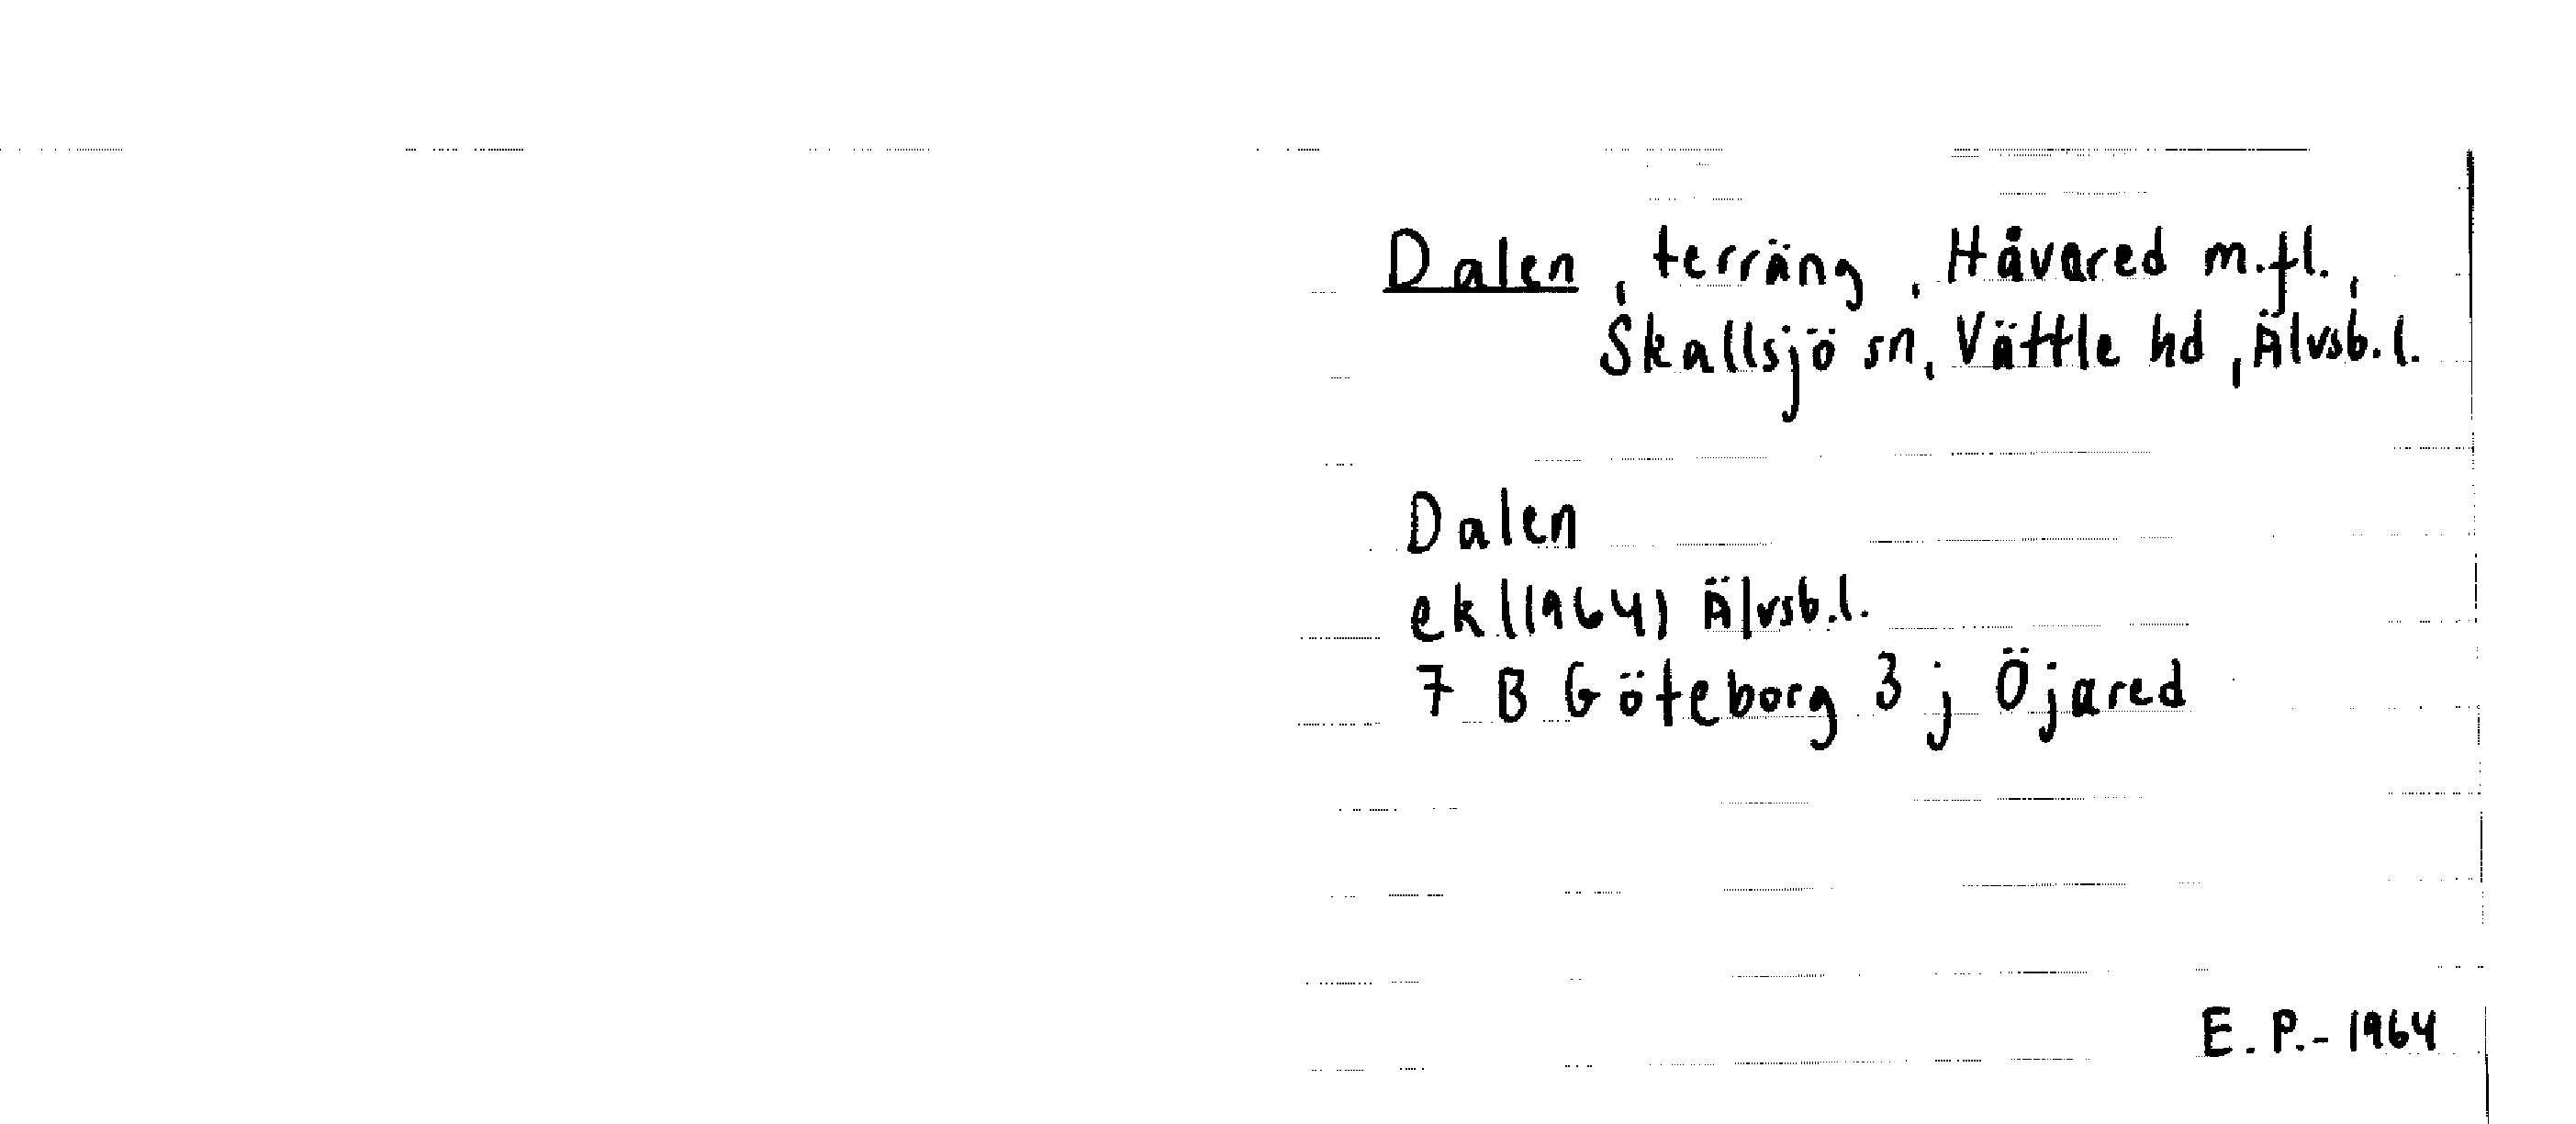 Dalen, terräng, Håvared m.fl.,
Skallsjö sn, Vättle hd, Älvsb.l.
Dalen
ek(1964) Älvsb.l.
7 B Göteborg 3 j Öjared
E.P.-1964